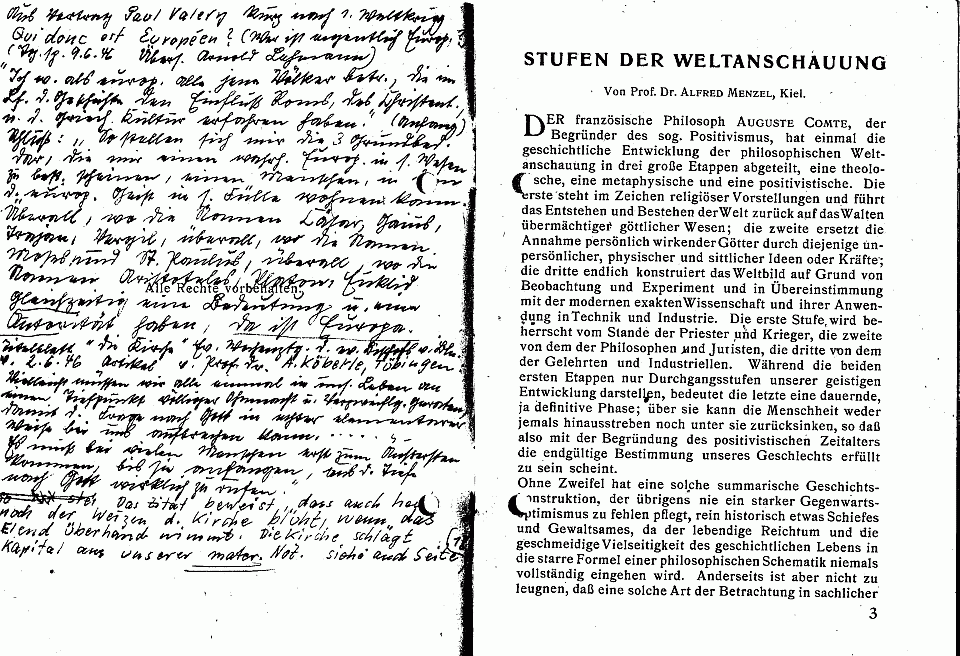 Aus Vortrag Paul Valery kurz nach 1. Weltkrieg
Qui donc est Européen? (Wer ist eigentlich Europ.
9.6.46 Übers. Arnold Lehmann)
"Ich w. als europ. alle jene Völker betr., die im
Lf. d. Geschichte den Einfluß Roms, des Christent.
u. d. griech. Kultur erfahren haben." (Anfang)
Schluß: "So stellen sich mir die 3 Grundbed.
dar, die mir einen wahrh. Europ. in s. Wesen
zu best. scheinen, einen Menschen, in
d. europ. Geist in s. Fülle wohnen kann.
Überall, wo die Namen Cäsar, Gaius,
Trajan, Vergil, überall, wo die Namen
Moses und St. Paulus, überall, wo die
Namen Aristoteles, Platon, Euklid
Alle Rechte vorbehalten.
gleichzeitig eine Bedeutung u. eine
Autorität haben, da ist Europa.
Titelblatt "die Kirche" Ev. Wochenztg.
v. 2.6.46 Artikel v. Prof. Dr. A. Köberle, Tübingen
Vielleicht müssen wir alle einmal in uns. Leben an
einen Tiefpunkt völliger Ohnmacht u. geraten,
damit d. Frage nach Gott in echter elementarer
Weise bei uns aufbrechen kann. .....
Es muß bei vielen Menschen erst zum Äußersten
kommen, bis sie anfangen, aus d. Tiefe
nach Gott wirklich zu rufen."
Das Zitat beweist, dass auch
noch der Weizen d. Kirche blüht, wenn das
Elend überhand nimmt. Die Kirche schlägt
Kapital aus unserer mater. Not. siehe auch Seite
STUFEN DER WELTANSCHAUUNG
Von Prof. Dr. ALFRED MENZEL, Kiel.
DER französische Philosoph AUGUSTE COMTE, der
Begründer des sog. Positivismus, hat einmal die
geschichtliche Entwicklung der philosophischen Welt-
anschauung in drei große Etappen abgeteilt, eine theolo-
sche, eine metaphysische und eine positivistische. Die
erste steht im Zeichen religiöser Vorstellungen und führt
das Entstehen und Bestehen der Welt zurück auf das Walten
übermächtiger göttlicher Wesen; die zweite ersetzt die
Annahme persönlich wirkender Götter durch diejenige un-
persönlicher, physischer und sittlicher Ideen oder Kräfte;
die dritte endlich konstruiert das Weltbild auf Grund von
Beobachtung und Experiment und in Übereinstimmung
mit der modernen exakten Wissenschaft und ihrer Anwen-
dung in Technik und Industrie. Die erste Stufe wird be-
herrscht vom Stande der Priester und Krieger, die zweite
von dem der Philosophen und Juristen, die dritte von dem
der Gelehrten und Industriellen. Während die beiden
ersten Etappen nur Durchgangsstufen unserer geistigen
Entwicklung darstellen, bedeutet die letzte eine dauernde,
ja definitive Phase; über sie kann die Menschheit weder
jemals hinausstreben noch unter sie zurücksinken, so daß
also mit der Begründung des positivistischen Zeitalters
die endgültige Bestimmung unseres Geschlechts erfüllt
zu sein scheint.
Ohne Zweifel hat eine solche summarische Geschichts-
konstruktion, der übrigens nie ein starker Gegenwarts-
optimismus zu fehlen pflegt, rein historisch etwas Schiefes
und Gewaltsames, da der lebendige Reichtum und die
geschmeidige Vielseitigkeit des geschichtlichen Lebens in
die starre Formel einer philosophischen Schematik niemals
vollständig eingehen wird. Anderseits ist aber nicht zu
leugnen, daß eine solche Art der Betrachtung in sachlicher
3